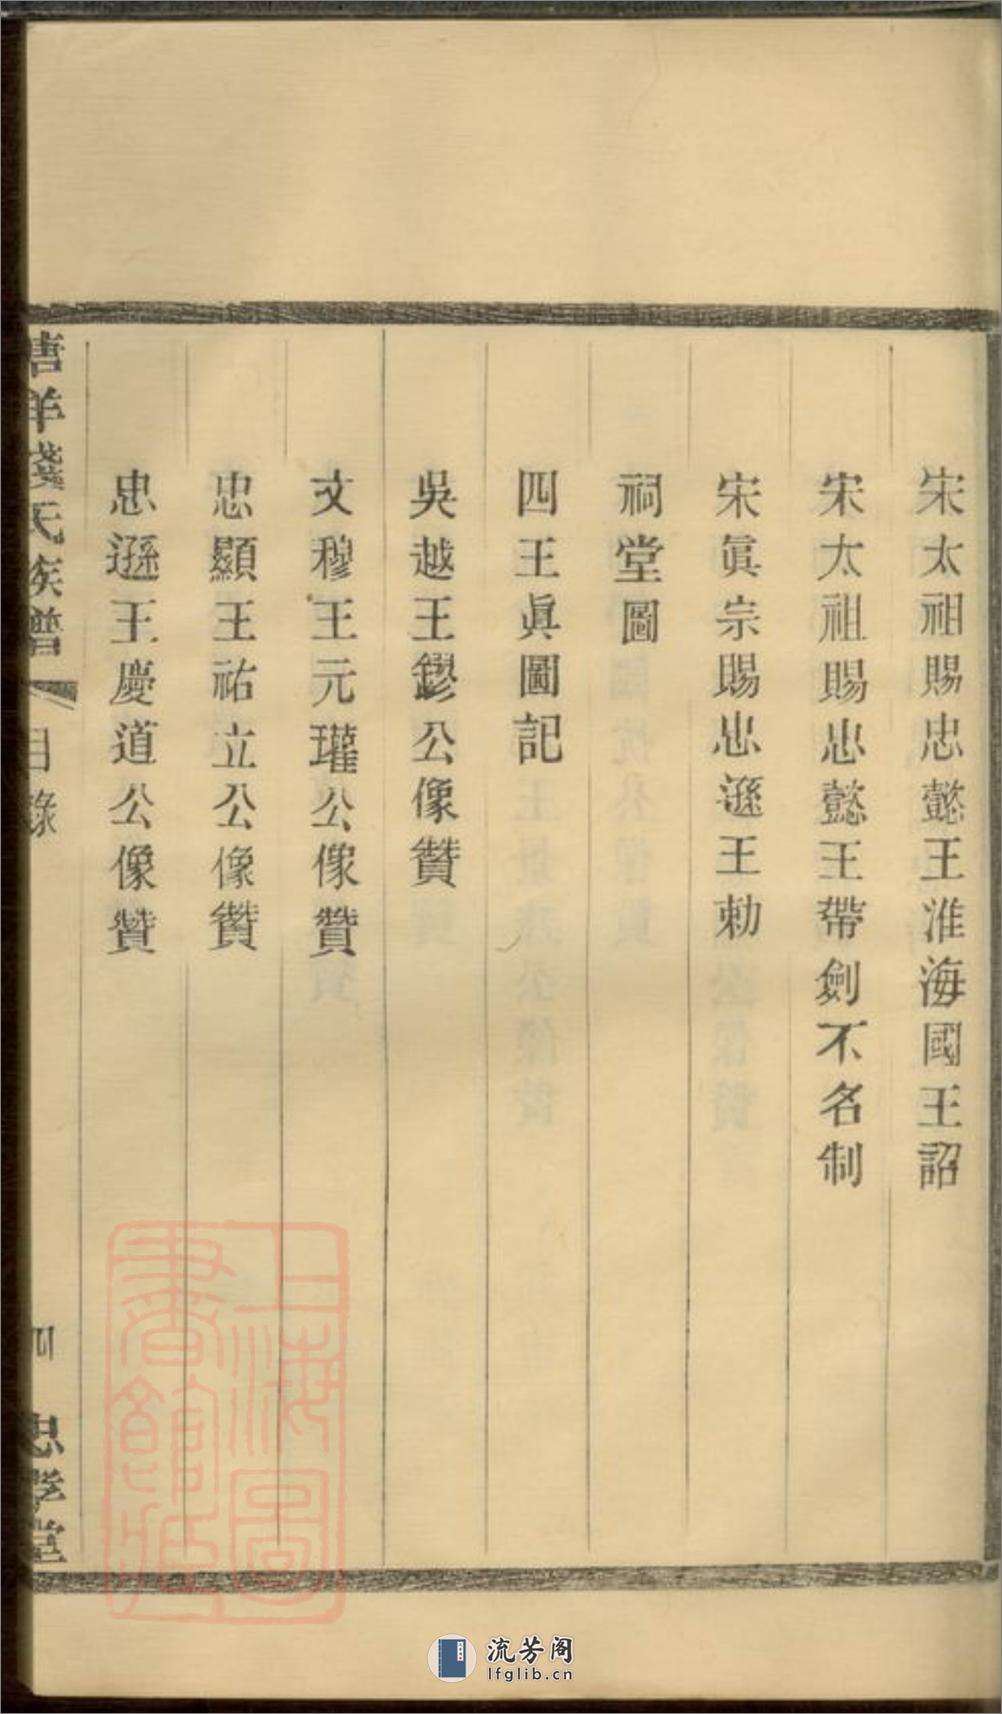 宋太祖賜忠懿王淮海國王詔
宋太祖賜忠懿王帶劍不名制
宋眞宗賜忠遜王勅
祠堂圖
四王眞圖記
吳越王鏐公像贊
文穆王元瓘公像贊
忠顯王祐立公像贊
忠遜王慶道公像贊
錢氏族譜
目錄
四
忠孝堂
上海圖
書館藏
流芳阁
lfglib.cn